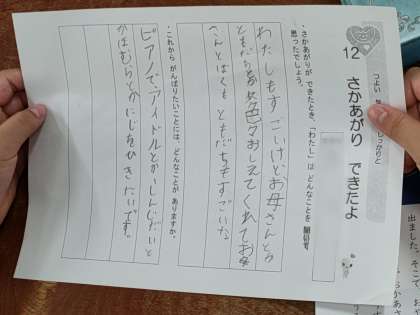 つよい
しっかりと
12 さかあがり できたよ
・さかあがりが できたとき、「わたし」は どんなことを
思ったでしょう。
わたしもすごいけどお母さんとか
ともだちが色々おしえてくれてお母
さんとぼくも ともだちもすごいな
・これから がんばりたいことには、どんなことが ありますか。
ピアノでアイドルとか
かにじをひきたいです。
出ました。そこで、お